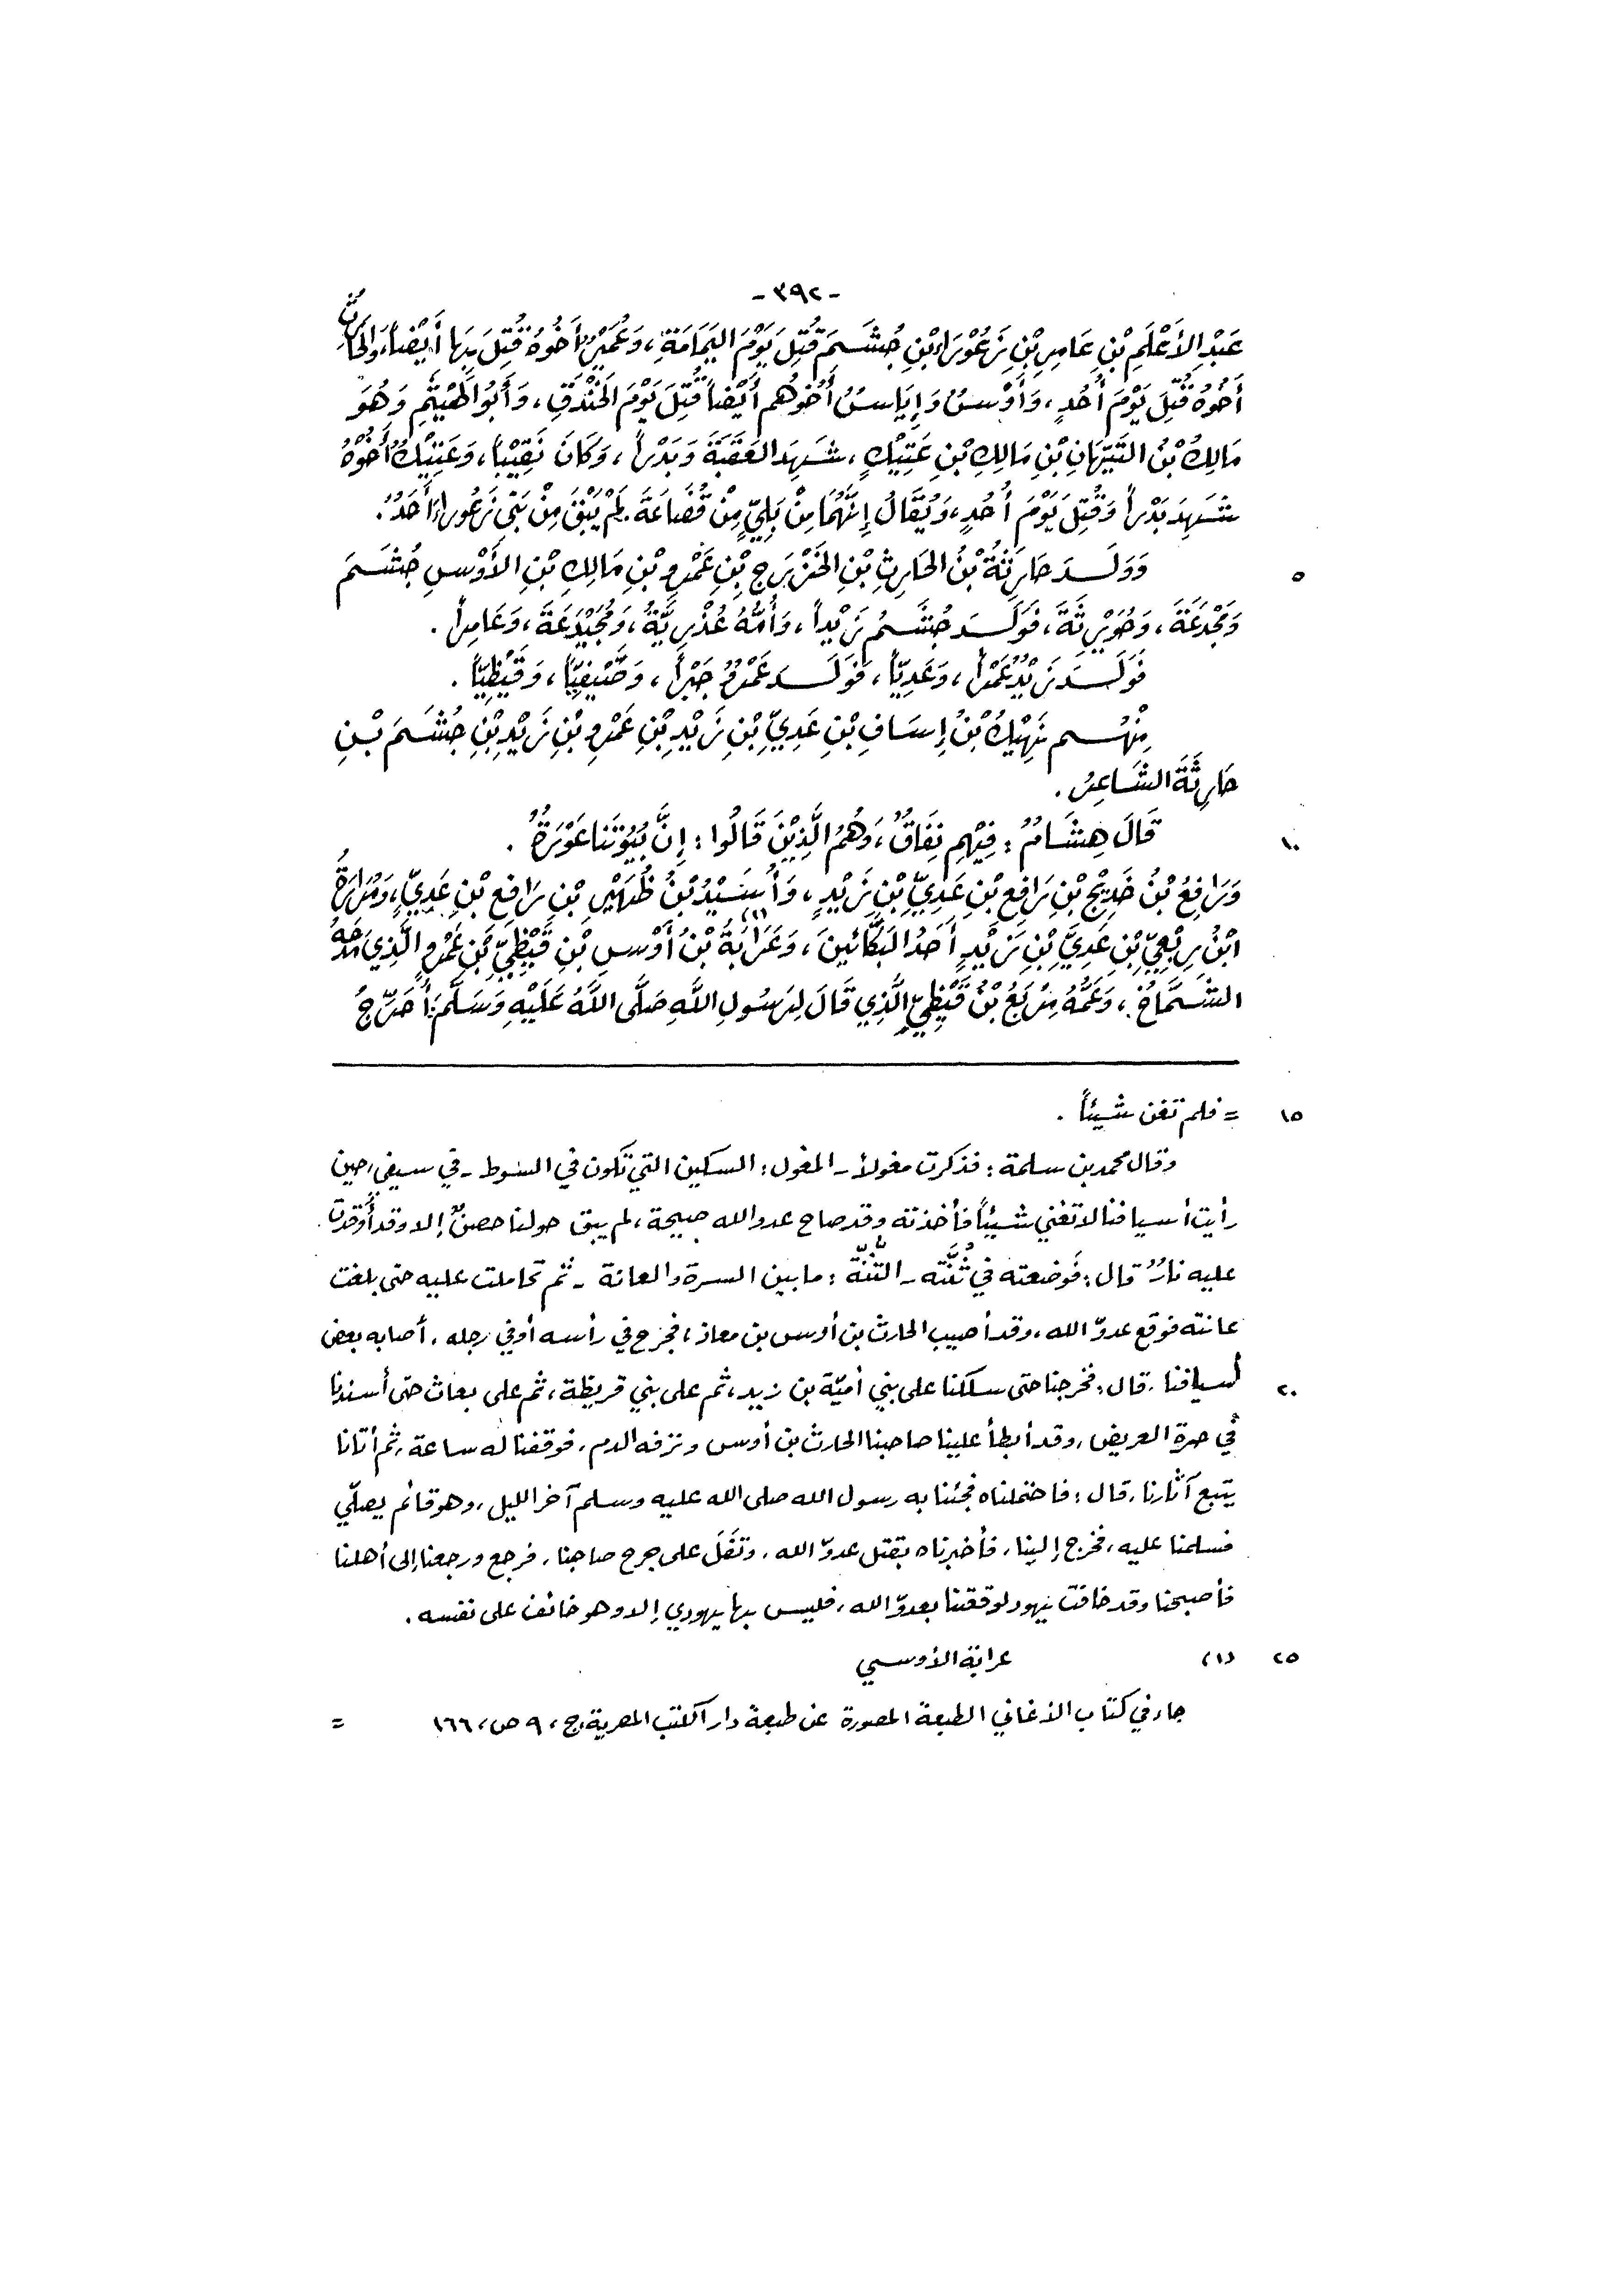 -٣٩٢-
عَبْدِ الأَعْلَمِ بْنِ عَامِرِ بْنِ زَعُوْرَاءَ بْنِ جُشَمَ قُتِلَ يَوْمَ اليَمَامَةِ، وَعُمَيْرٌ أَخُوهُ قُتِلَ بِهَا أَيْضاً، وَالحَارِثُ
أَخُوهُ قُتِلَ يَوْمَ أُحُدٍ، وَأَوْسٌ وَإِيَاسٌ أَخُوهُم أَيْضاً قُتِلَ يَوْمَ الخَنْدَقِ، وَأَبُو الهَيْثَمِ وَهُوَ
مَالِكُ بْنُ التَّيِّهَانِ بْنِ مَالِكِ بْنِ عَتِيْكٍ، شَهِدَ العَقَبَةَ وَبَدْراً، وَكَانَ نَقِيْباً، وَعَتِيْكٌ أَخُوْهُ
شَهِدَ بَدْراً وَقُتِلَ يَوْمَ أُحُدٍ، وَيُقَالُ إِنَّهُمَا مِنْ بَلِيٍّ مِنْ قُضَاعَةَ. لَمْ يَبْقَ مِنْ بَنِي زَعُوراءَ أَحَدٌ.
٥ وَوَلَدَ حَارِثَةُ بْنُ الحَارِثِ بْنِ الخَزْرَجِ بْنِ عَمْرِو بْنِ مَالِكِ بْنِ الأَوْسِ جُشَمَ
وَمَجْدَعَةَ، وَحُوَيْرِثَةَ، فَوَلَدَ جُشَمُ زَيْداً، وَأُمُّهُ عُذْرِيَّةٌ، وَمُجَيْدَعَةَ، وَعَامِراً.
فَوَلَدَ زَيْدٌ عَمْراً، وَعَدِيّاً، فَوَلَدَ عَمْرٌو جَبْراً، وَصَيْفِيّاً، وَقَيْظِيّاً.
مِنْهُم نَهِيْكُ بْنُ إِسَافِ بْنِ عَدِيِّ بْنِ زَيْدِ بْنِ عَمْرِو بْنِ زَيْدِ بْنِ جُشَمَ بْنِ
حَارِثَةَ الشَاعِرُ.
١٠ قَالَ هِشَامٌ: فِيْهِم نِفَاقٌ، وَهُمُ الَّذِيْنَ قَالُوا: إِنَّ بُيُوْتَنَا عَوْرَةٌ.
وَرَافِعُ بْنُ خَدِيْجِ بْنِ رَافِعِ بْنِ عَدِيِّ بْنِ زَيْدٍ، وَأُسَيْدُ بْنُ ظُهَيْرِ بْنِ رَافِعِ بْنِ عَدِيٍّ، وَمُرَارَةُ
ابْنُ رِبْعِيِّ بْنِ عَدِيِّ بْنِ زَيْدٍ أَحَدُ البَكَّائِينَ، وَعَرَابَةُ (١) بْنُ أَوْسِ بْنِ قَيْظِيِّ بْنِ عَمْرٍو الَّذِي مَدَحَهُ
الشَّمَّاخُ، وَعَمُّهُ مِرْبَعُ بْنُ قَيْظِيٍّ الَّذِي قَالَ لِرَسُولِ اللَّهِ صَلَّى اللَّهُ عَلَيْهِ وَسَلَّمَ: أُحَرِّجُ
١٥ = فلم تغن شيئاً.
وقال محمد بن سلمة: فذكرت مغولاً - المغول: السكين التي تكون في السوط - في سيفي حين
رأيت أسيافنا لا تغني شيئاً فأخذته وقد صاح عدو الله صيحة، لم يبق حولنا حصنٌ إلا وقد أُوقدت
عليه نارٌ قال: فوضعته في ثُنَّته - الثُّنّة: ما بين السرة والعانة - ثم تحاملت عليه حتى بلغت
عانته فوقع عدوّ الله، وقد أصيب الحارث بن أوس بن معاذ، فجرح في رأسه أو في رجله، أصابه بعض
٢٠ أسيافنا، قال: فخرجنا حتى سلكنا على بني أميّة بن زيد، ثم على بني قريظة، ثم على بعاث حتى أسندنا
في حرة العريض، وقد أبطأ علينا صاحبنا الحارث بن أوس ونزفه الدم، فوقفنا له ساعة، ثم أتانا
يتبع آثارنا، قال: فاحتملناه فجئنا به رسول الله صلى الله عليه وسلم آخر الليل، وهو قائم يصلّي
فسلمنا عليه، فخرج إلينا، فأخبرناه بقتل عدوّ الله، وتَفَلَ على جرح صاحبنا، فرجع ورجعنا إلى أهلنا
فأصبحنا وقد خافت يهود لوقعتنا بعدوّ الله، فليس بها يهودي إلا وهو خائف على نفسه.
٢٥ (١) عرابة الأوسي
جاء في كتاب الأغاني الطبعة المصورة عن طبعة دار الكتب المصرية، ج، ٩ ص، ١٦٦ =